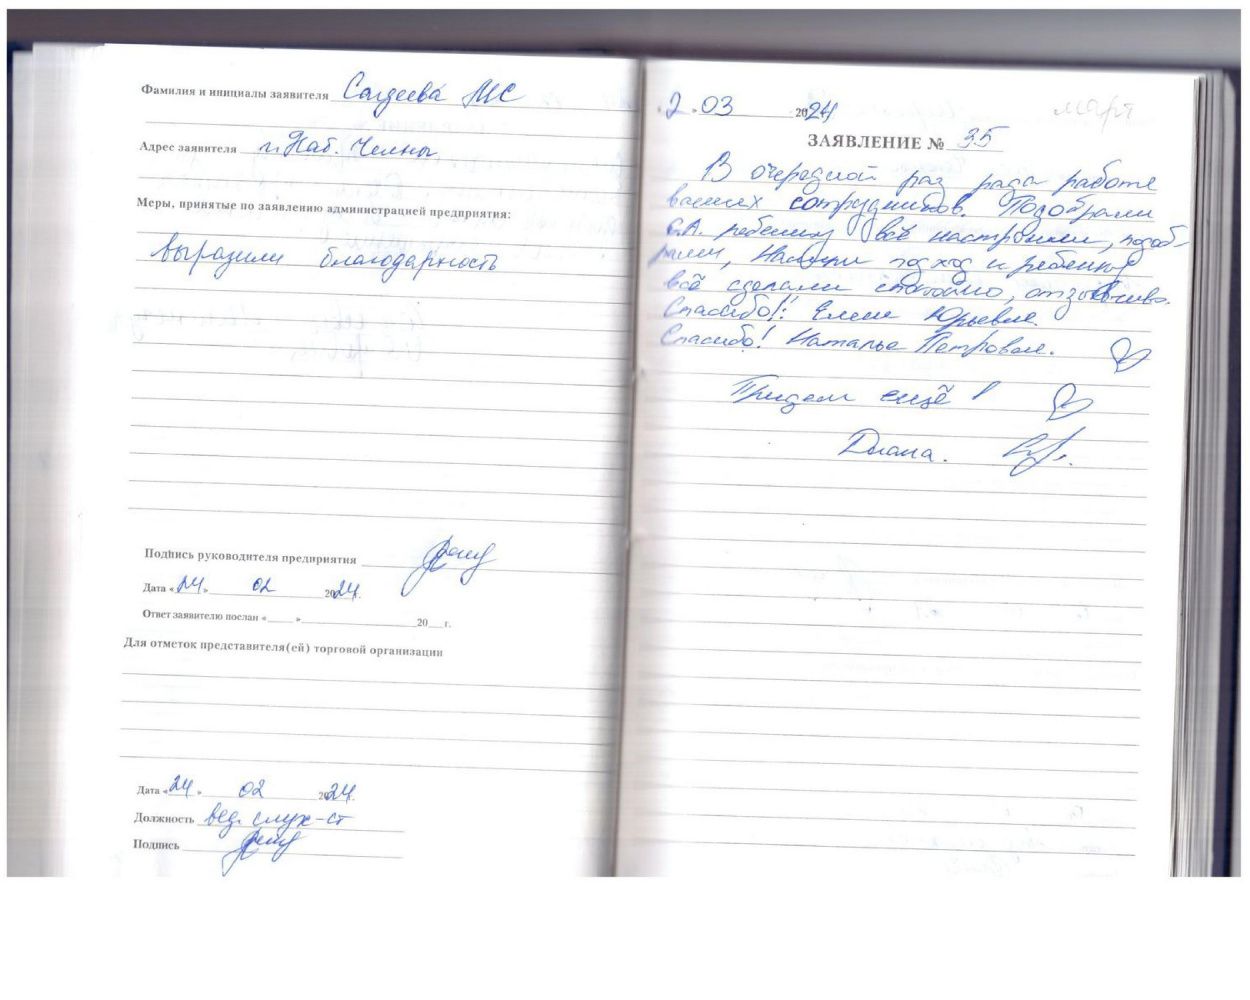 Фамилия и инициалы заявителя Сагдеева МС
Адрес заявителя г. Наб. Челны
Меры, принятые по заявлению администрацией предприятия:
Выразили благодарность
Подпись руководителя предприятия
Дата «24» 02 2024г.
Ответ заявителю послан « » 20 г.
Для отметок представителя(ей) торговой организации
Дата «24» 02 2024г.
Должность вед. слух-ст
Подпись
«2» 03 2024 март
ЗАЯВЛЕНИЕ № 35
В очередной раз рады работе
ваших сотрудников. Подобрали
С.А. ребенку всё настроили, подоб-
рали, Нашли подход к ребенку
всё сделали спокойно, отзывчиво.
Спасибо!! Елене Юрьевне.
Спасибо! Наталье Петровне.
Придем ещё!
Диана.